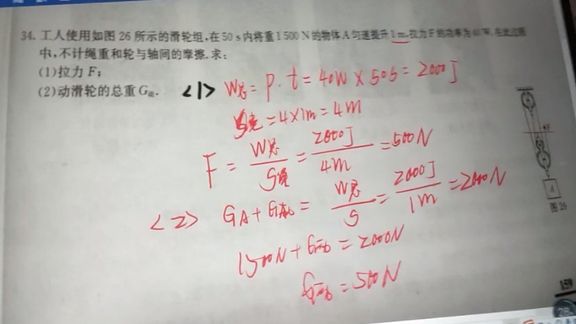 34. 工人使用如图26所示的滑轮组,在50s内将重1500N的物体A匀速提升1m,拉力F的功率为40W.在此过程
中,不计绳重和轮与轴间的摩擦.求:
(1)拉力F;
(2)动滑轮的总重G动.
<1> W总=P·t=40W×50s=2000J
S绳=4×1m=4m
F=W总/S绳=2000J/4m=500N
<2> GA+G动=W总/S=2000J/1m=2000N
1500N+G动=2000N
G动=500N
A
图26
159